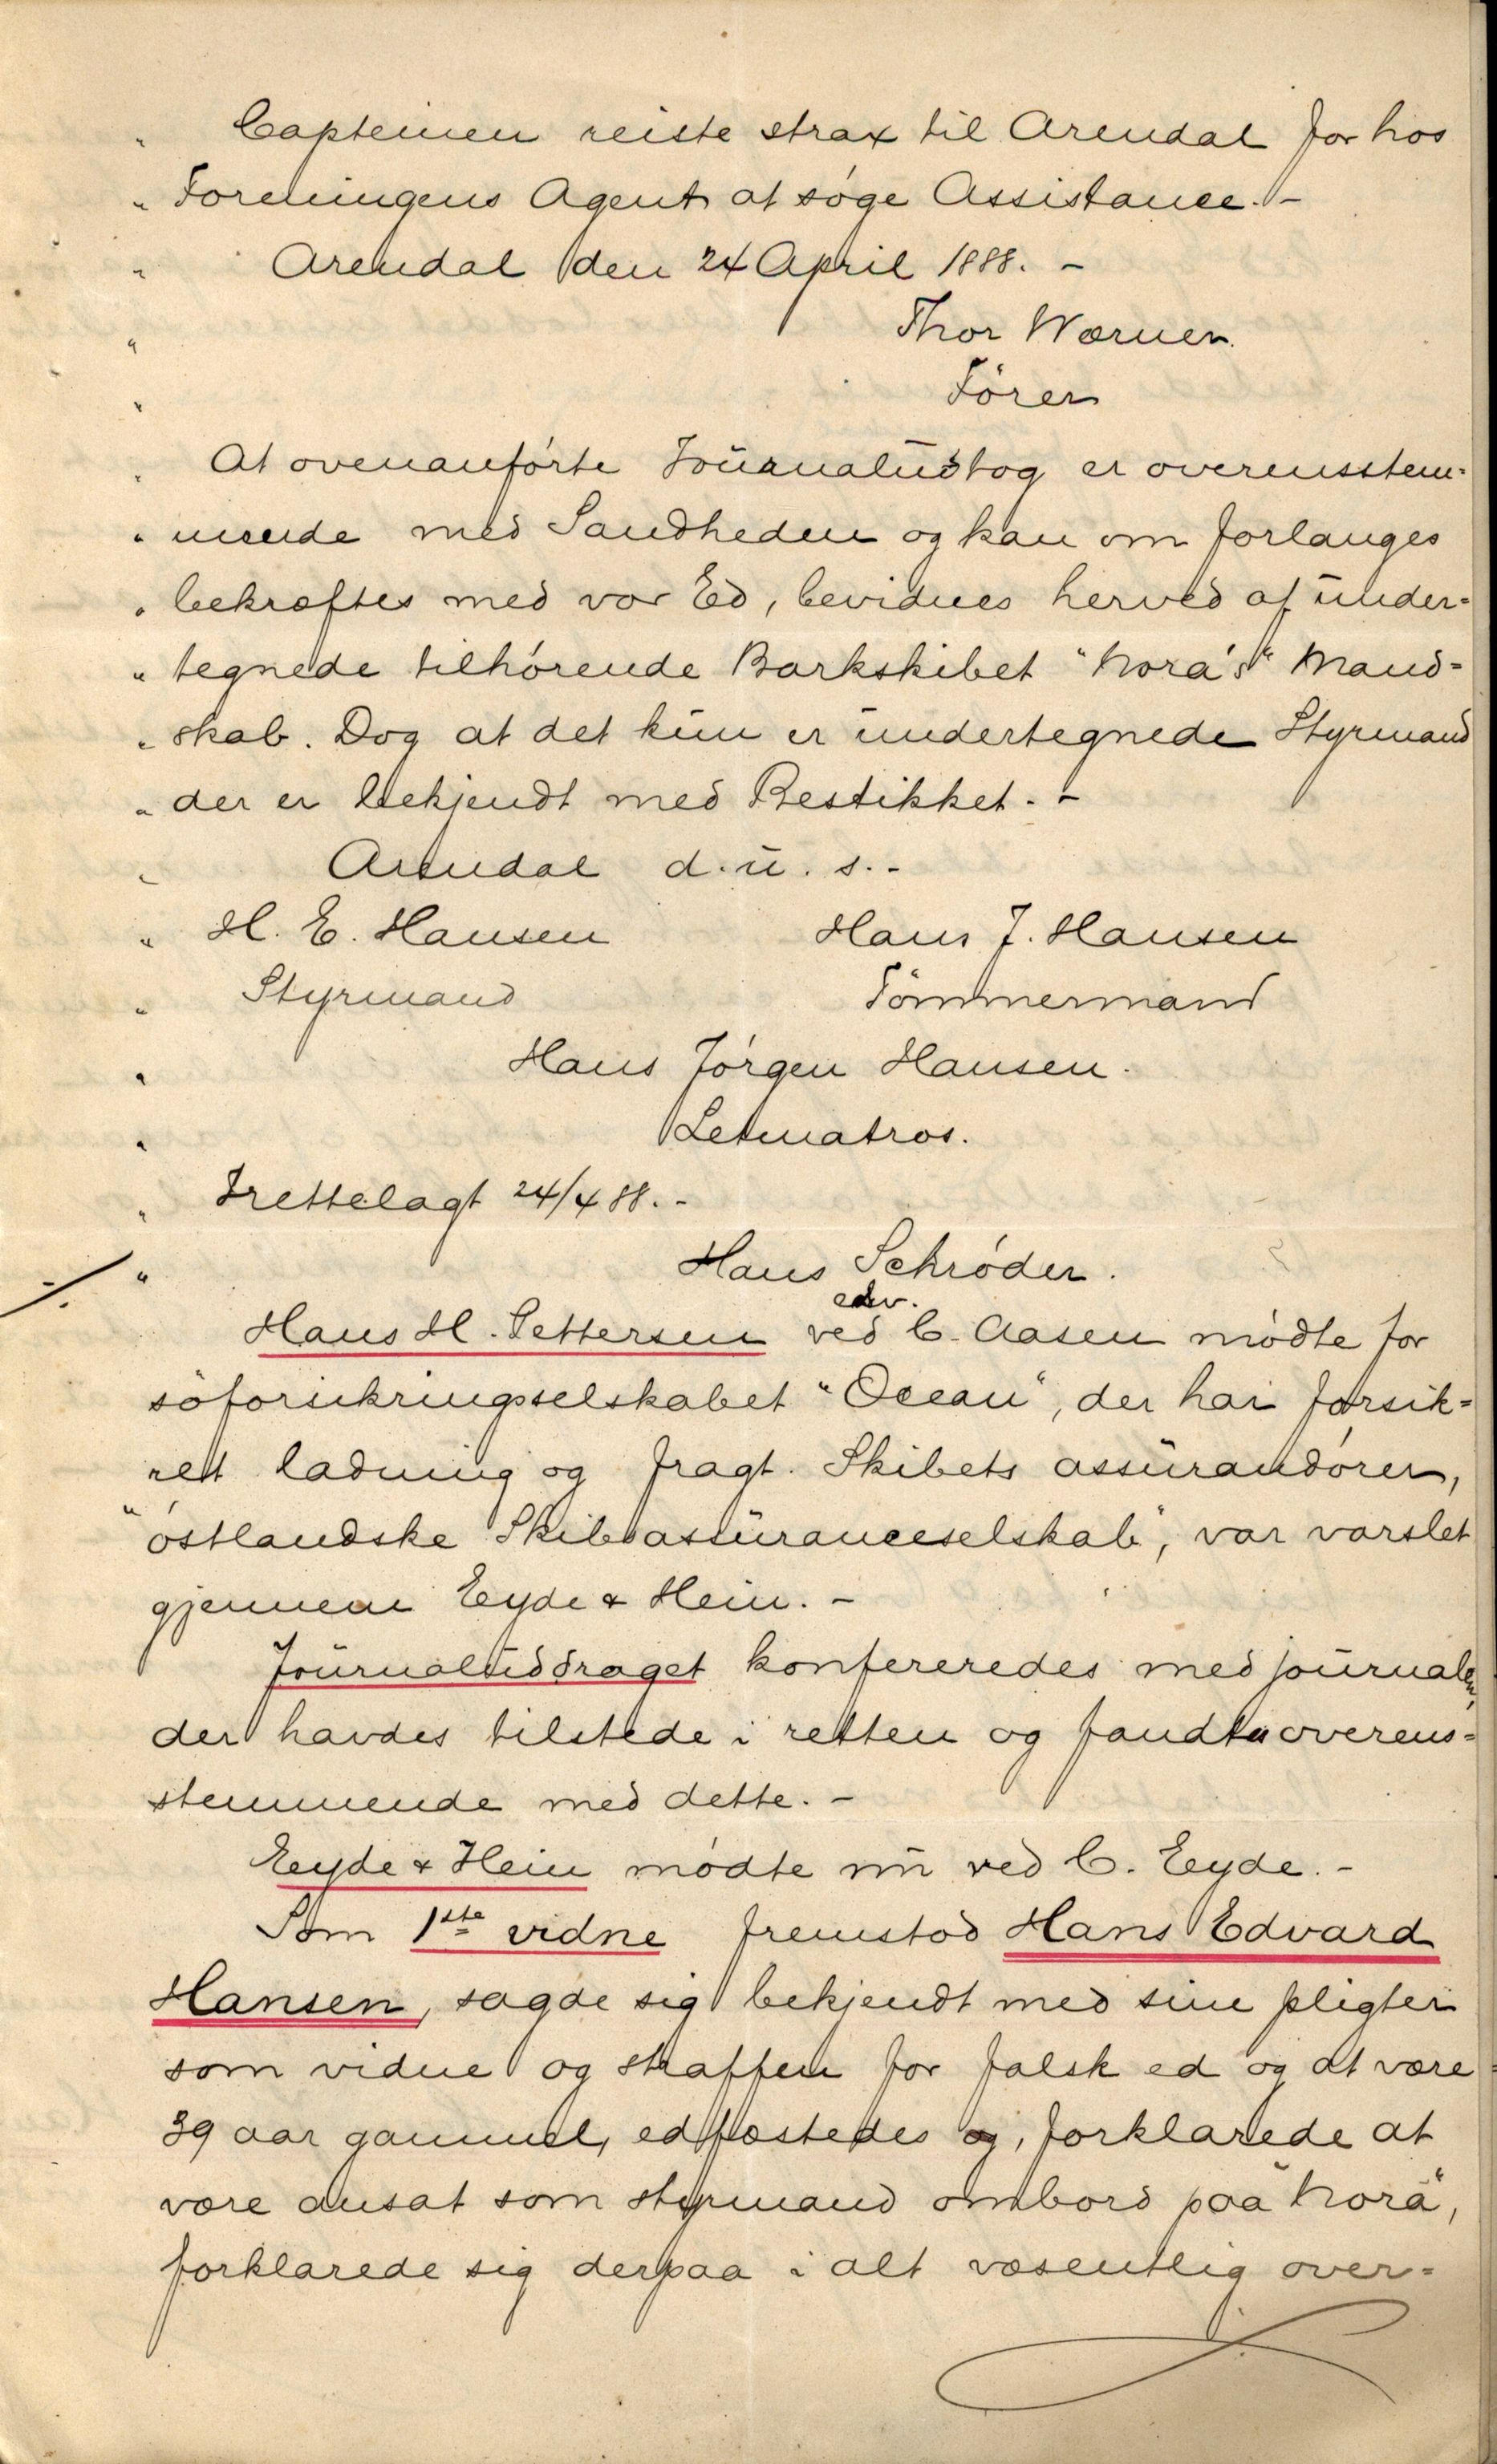 " Capteinen reiste strax til Arendal for hos
" Foreningens Agent at søge Assistance. -
" Arendal den 24 April 1888. -
" Thor Wærner.
" Fører
" At ovenanførte Journaludtog er overensstem-
" mende med Sandheden og kan om forlanges
" bekræftes med vor Ed, bevidnes herved af under-
" tegnede tilhørende Barkskibet "Nora's" Mand-
" skab. Dog at det kun er undertegnede Styrmand
" der er bekjendt med Bestikket. -
" Arendal d. u. s. -
" H. E. Hansen Hans J. Hansen
" Styrmand Tömmermand
" Hans Jørgen Hansen.
" Letmatros.
" Irettelagt 24/4 88. -
" Hans Schrøder.
edv.
Hans H. Pettersen ved C. Aasen mødte for
søforsikringsselskabet "Ocean", der har forsik-
ret ladning og fragt. Skibets assurandører,
"østlandske Skibsassuranceselskab", var varslet
gjennem Eyde & Hein. -
Journaluddraget konfereredes med journalen,
der havdes tilstede i retten og fandtes overens-
stemmende med dette. -
Eyde & Hein mødte nu ved C. Eyde. -
Som 1ste vidne fremstod Hans Edvard
Hansen, sagde sig bekjendt med sine pligter
som vidne og straffen for falsk ed og at være
39 aar gammel, edfæstedes og, forklarede at
være ansat som styrmand ombord paa "Nora",
forklarede sig derpaa i alt væsentlig over-